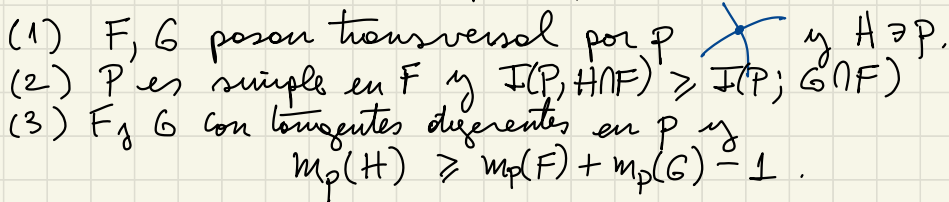 (1) F, G pasan transversal por P y H ∋ P.
(2) P es simple en F y I(P, H∩F) ≥ I(P; G∩F)
(3) F y G con tangentes diferentes en P y
m_p(H) ≥ m_p(F) + m_p(G) - 1.